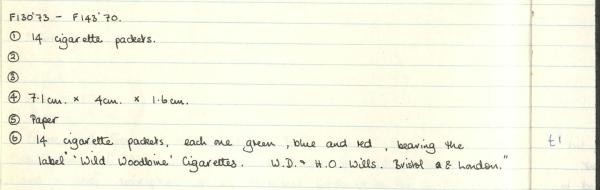 F130'73 - F143'70.
① 14 cigarette packets.
②
③
④ 7.1cm. × 4cm. × 1.6cm.
⑤ Paper
⑥ 14 cigarette packets, each one green, blue and red, bearing the £1
label "'Wild Woodbine' Cigarettes. W.D. & H.O. Wills. Bristol & London."